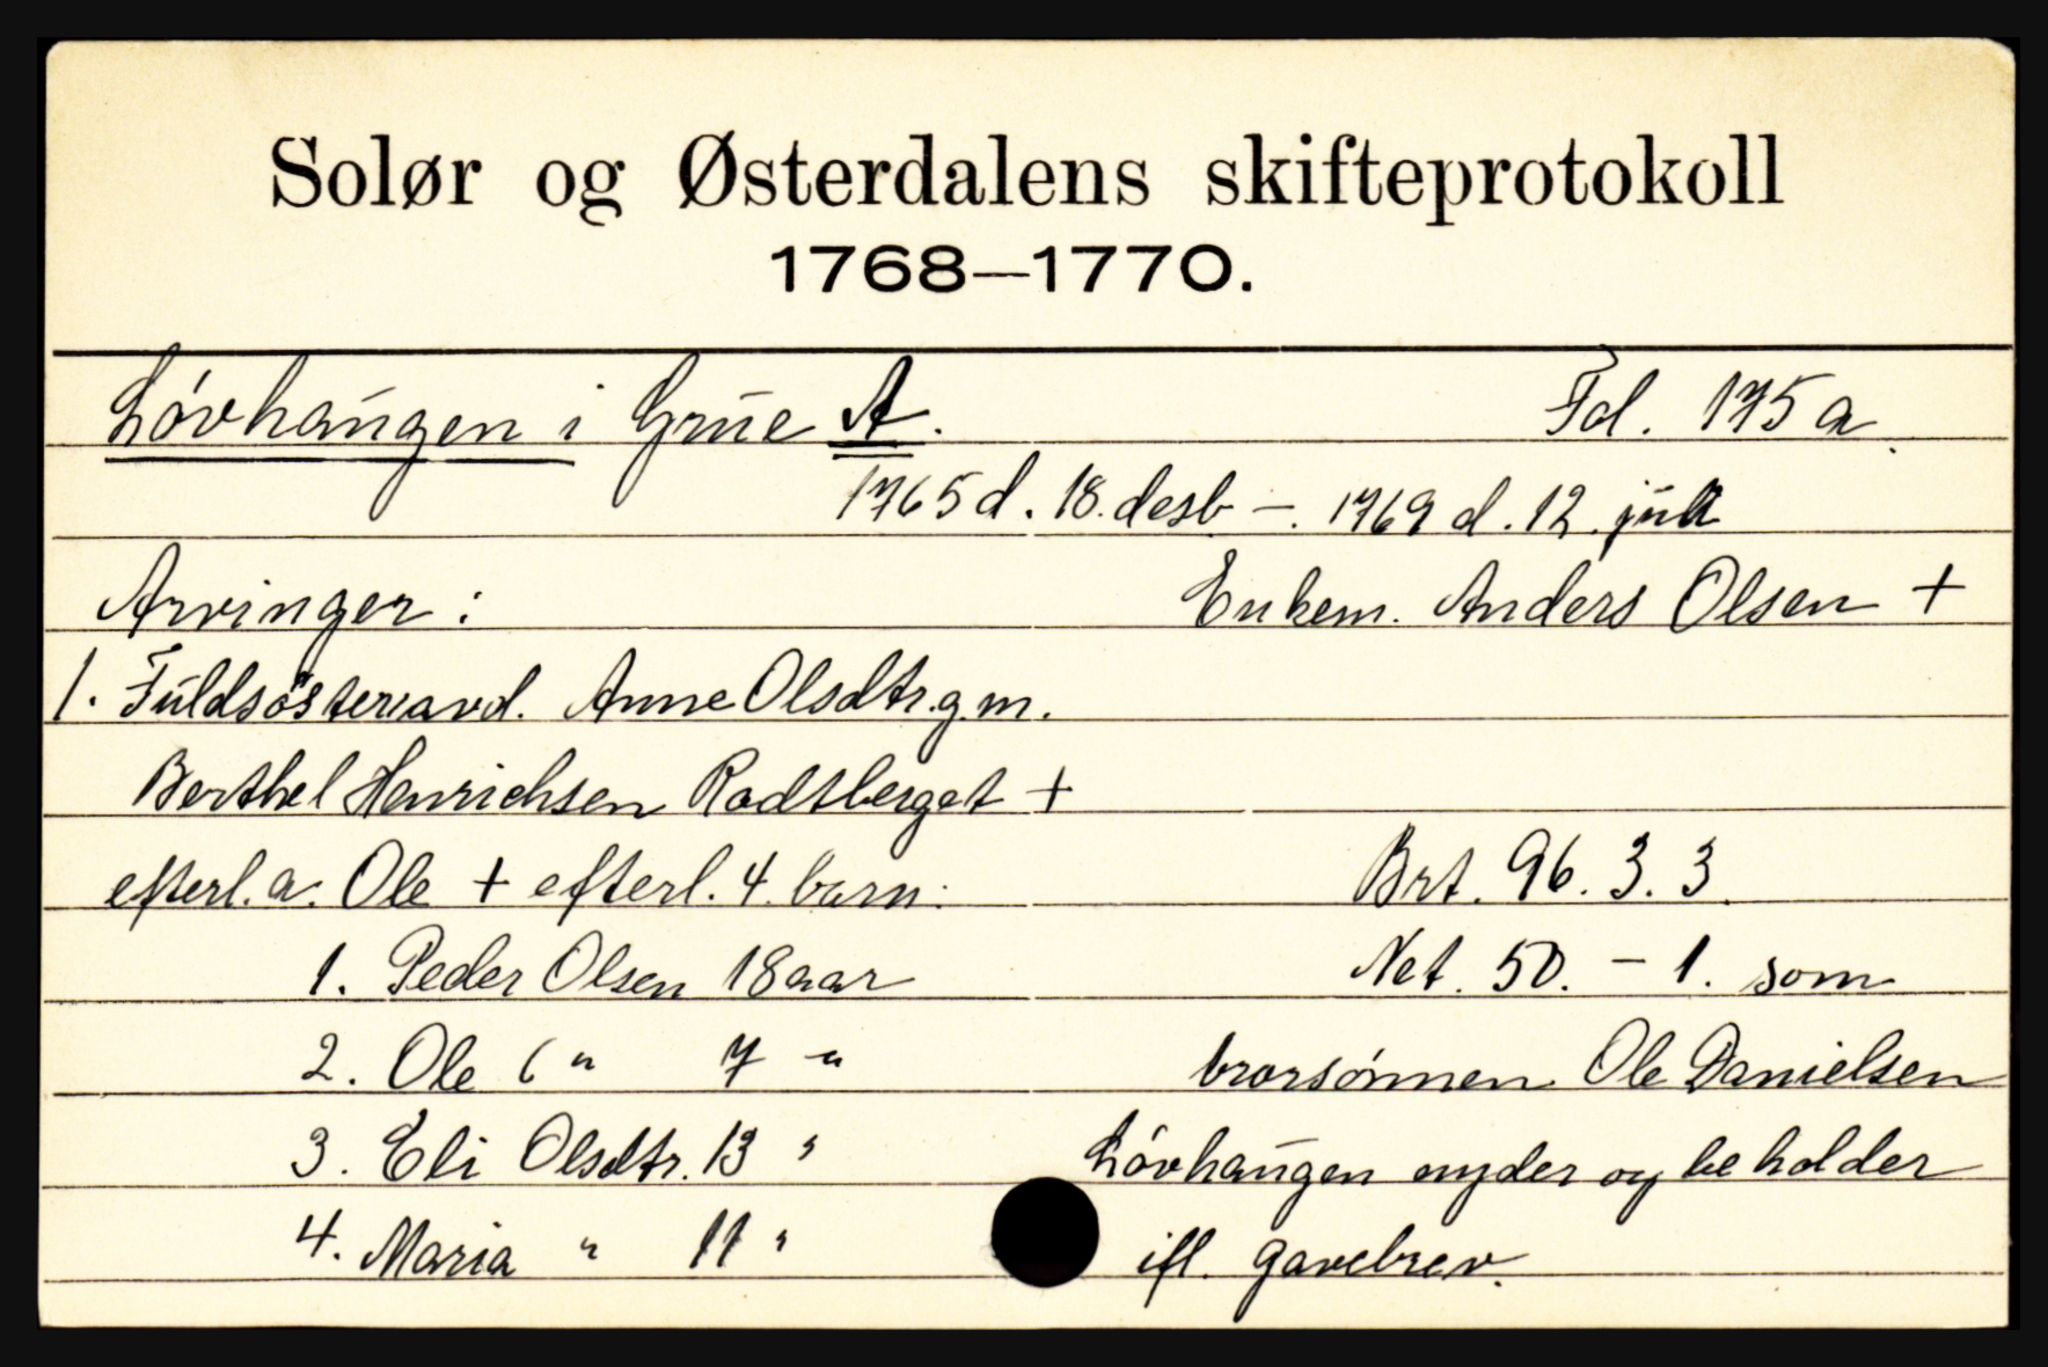 Solør og Østerdalens skifteprotokoll
1768—1770.
Lövhaugen i Grue A. Fol. 175 a.
1765 d. 18. desb -. 1769 d. 12. juli
Arvinger: Enkem. Anders Olsen +
1. Fuldsöster avd. Anne Olsdtr. g. m.
Berthel Henrichsen Rodtsberget +
efterl. a. Ole + efterl. 4. barn:
Brt. 96. 3. 3.
1. Peder Olsen 18 aar
Net. 50. - 1. som
2. Ole " 7 "
brorsönnen Ole Danielsen
3. Eli Olsdtr. 13 "
Lövhaugen nyder og beholder
4. Maria " 11 "
ifl. gavebrev.